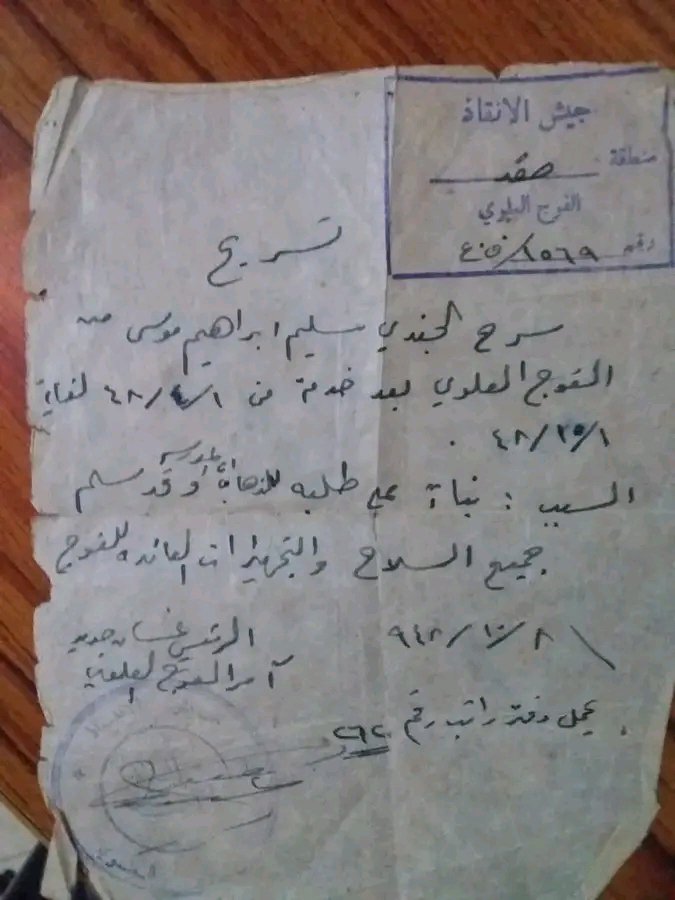 جيش الانقاذ
منطقة صفد
الفوج العلوي
رقم ٤٠٥/١٥٦٩
تسريح
سرح الجندي سليم ابراهيم موسى من
الفوج العلوي بعد خدمة من ٤٨/٤/١ لغاية
٤٨/١٠/١ .
السبب : بناءً على طلبه للذهاب الى المدرسة وقد سلم
جميع السلاح والتجهيزات العائده للفوج
٩٤٨/١٠/٨
الرئيس غسان جديد
آمر الفوج العلوي
يحمل دفتر راتب رقم ٢٦٢